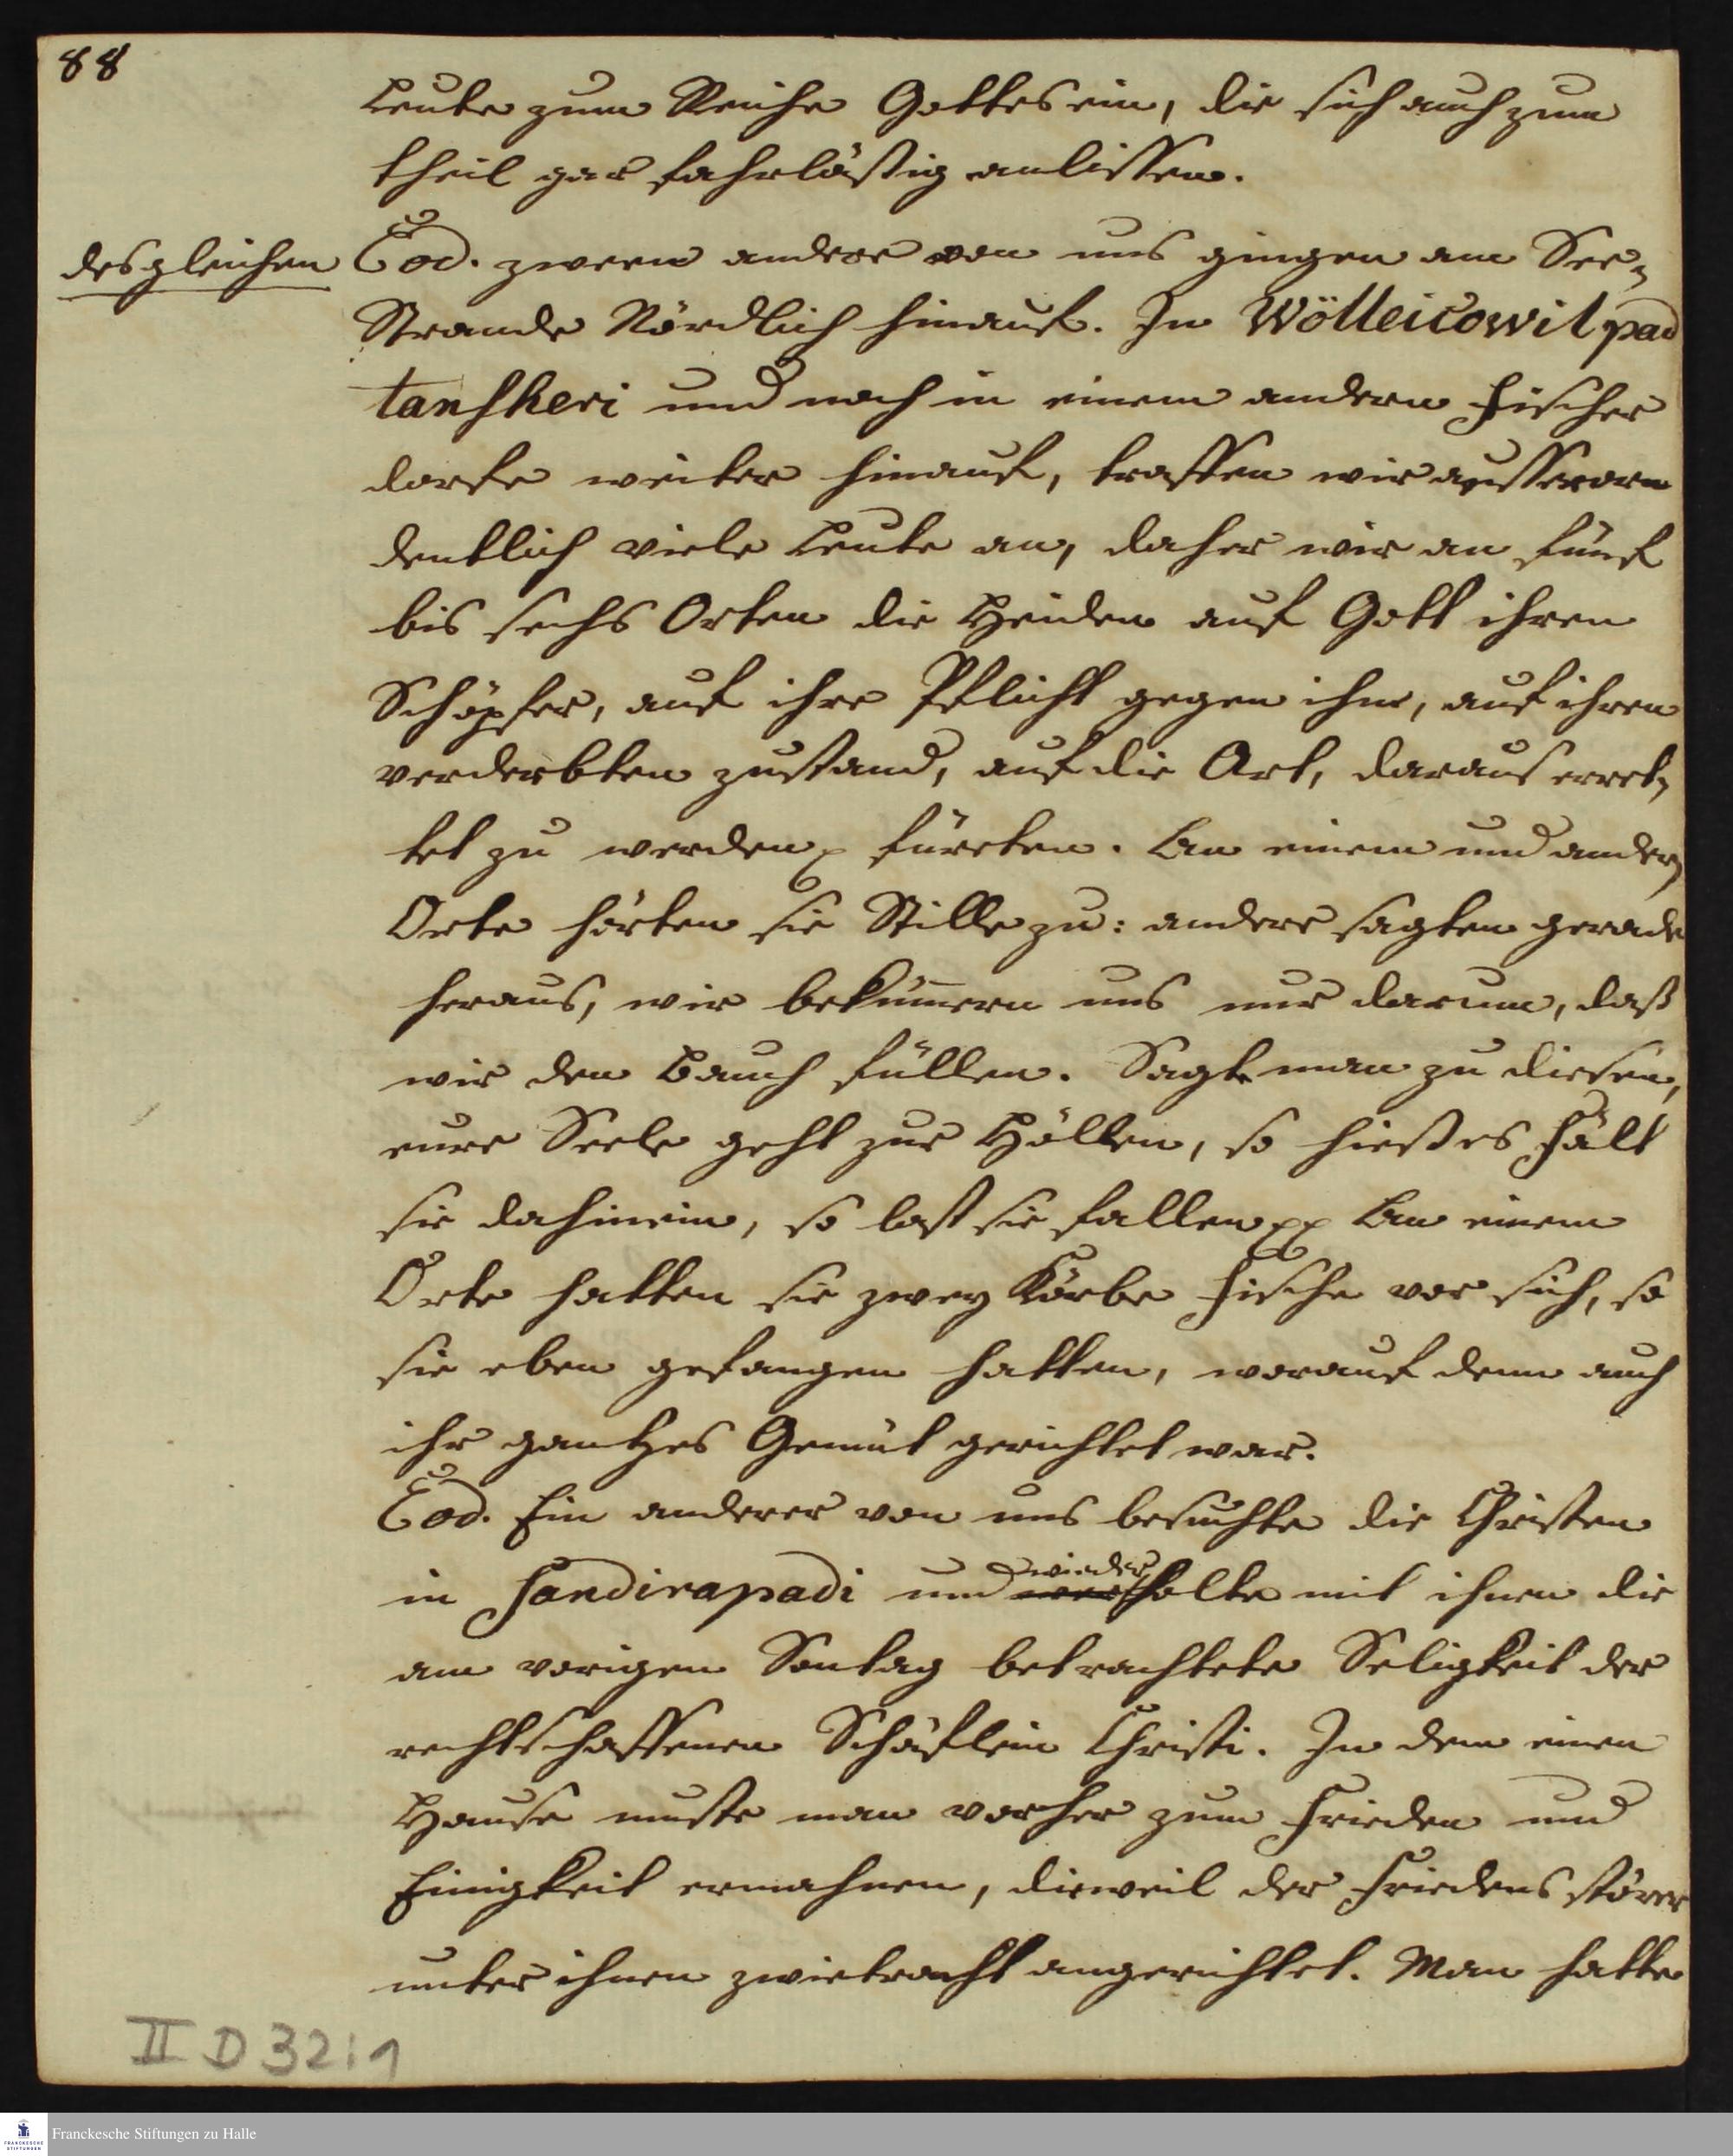 88
Leute zum Reiche Gottes ein, die sich auch zum
theil gar fahrläßig anlissen.
desgleichen
Eod. zween andere von uns gingen am See-
Strande Nördlich hinauf. In Wölleicowil pad
tanscheri und noch in einem andern Fischer
dorfe weiter hinauf, traffen wir ausseror
dentlich viele Leute an, daher wir an fünf
bis sechs Orten die Heiden auf Gott ihren
Schöpfer, auf ihre Pflicht gegen ihn, auf ihren
verderbten zustand, auf die Art, daraus erret-
tet zu werden p füreten. An einem und andern
Orte hörten sie Stille zu: andere sagten gerade
heraus, wir bekümern uns nur darum, daß
wir den Bauch füllen. Sagte man zu diesen,
eure Seele geht zur Höllen, so hieß es fält
sie dahinein, so last sie fallen pp An einem
Orte hatten sie zwey Körbe Fische vor sich, so
sie eben gefangen hatten, worauf denn auch
ihr gantzes Gemüt gerichtet war.
Eod. Ein anderer von uns besuchte die Christen
in Sandirapadi und wiederholte mit ihnen die
am vorigen Sontag betrachtete Seligkeit der
rechtschaffenen Schäflein Christi. In dem einen
Hause muste man vorher zum Frieden und
Einigkeit ermahnen, dieweil der Friedens störer
unter ihnen zwietracht angerichtet. Man hatte
II D 32:1
FRANCKESCHE STIFTUNGEN
Franckesche Stiftungen zu Halle